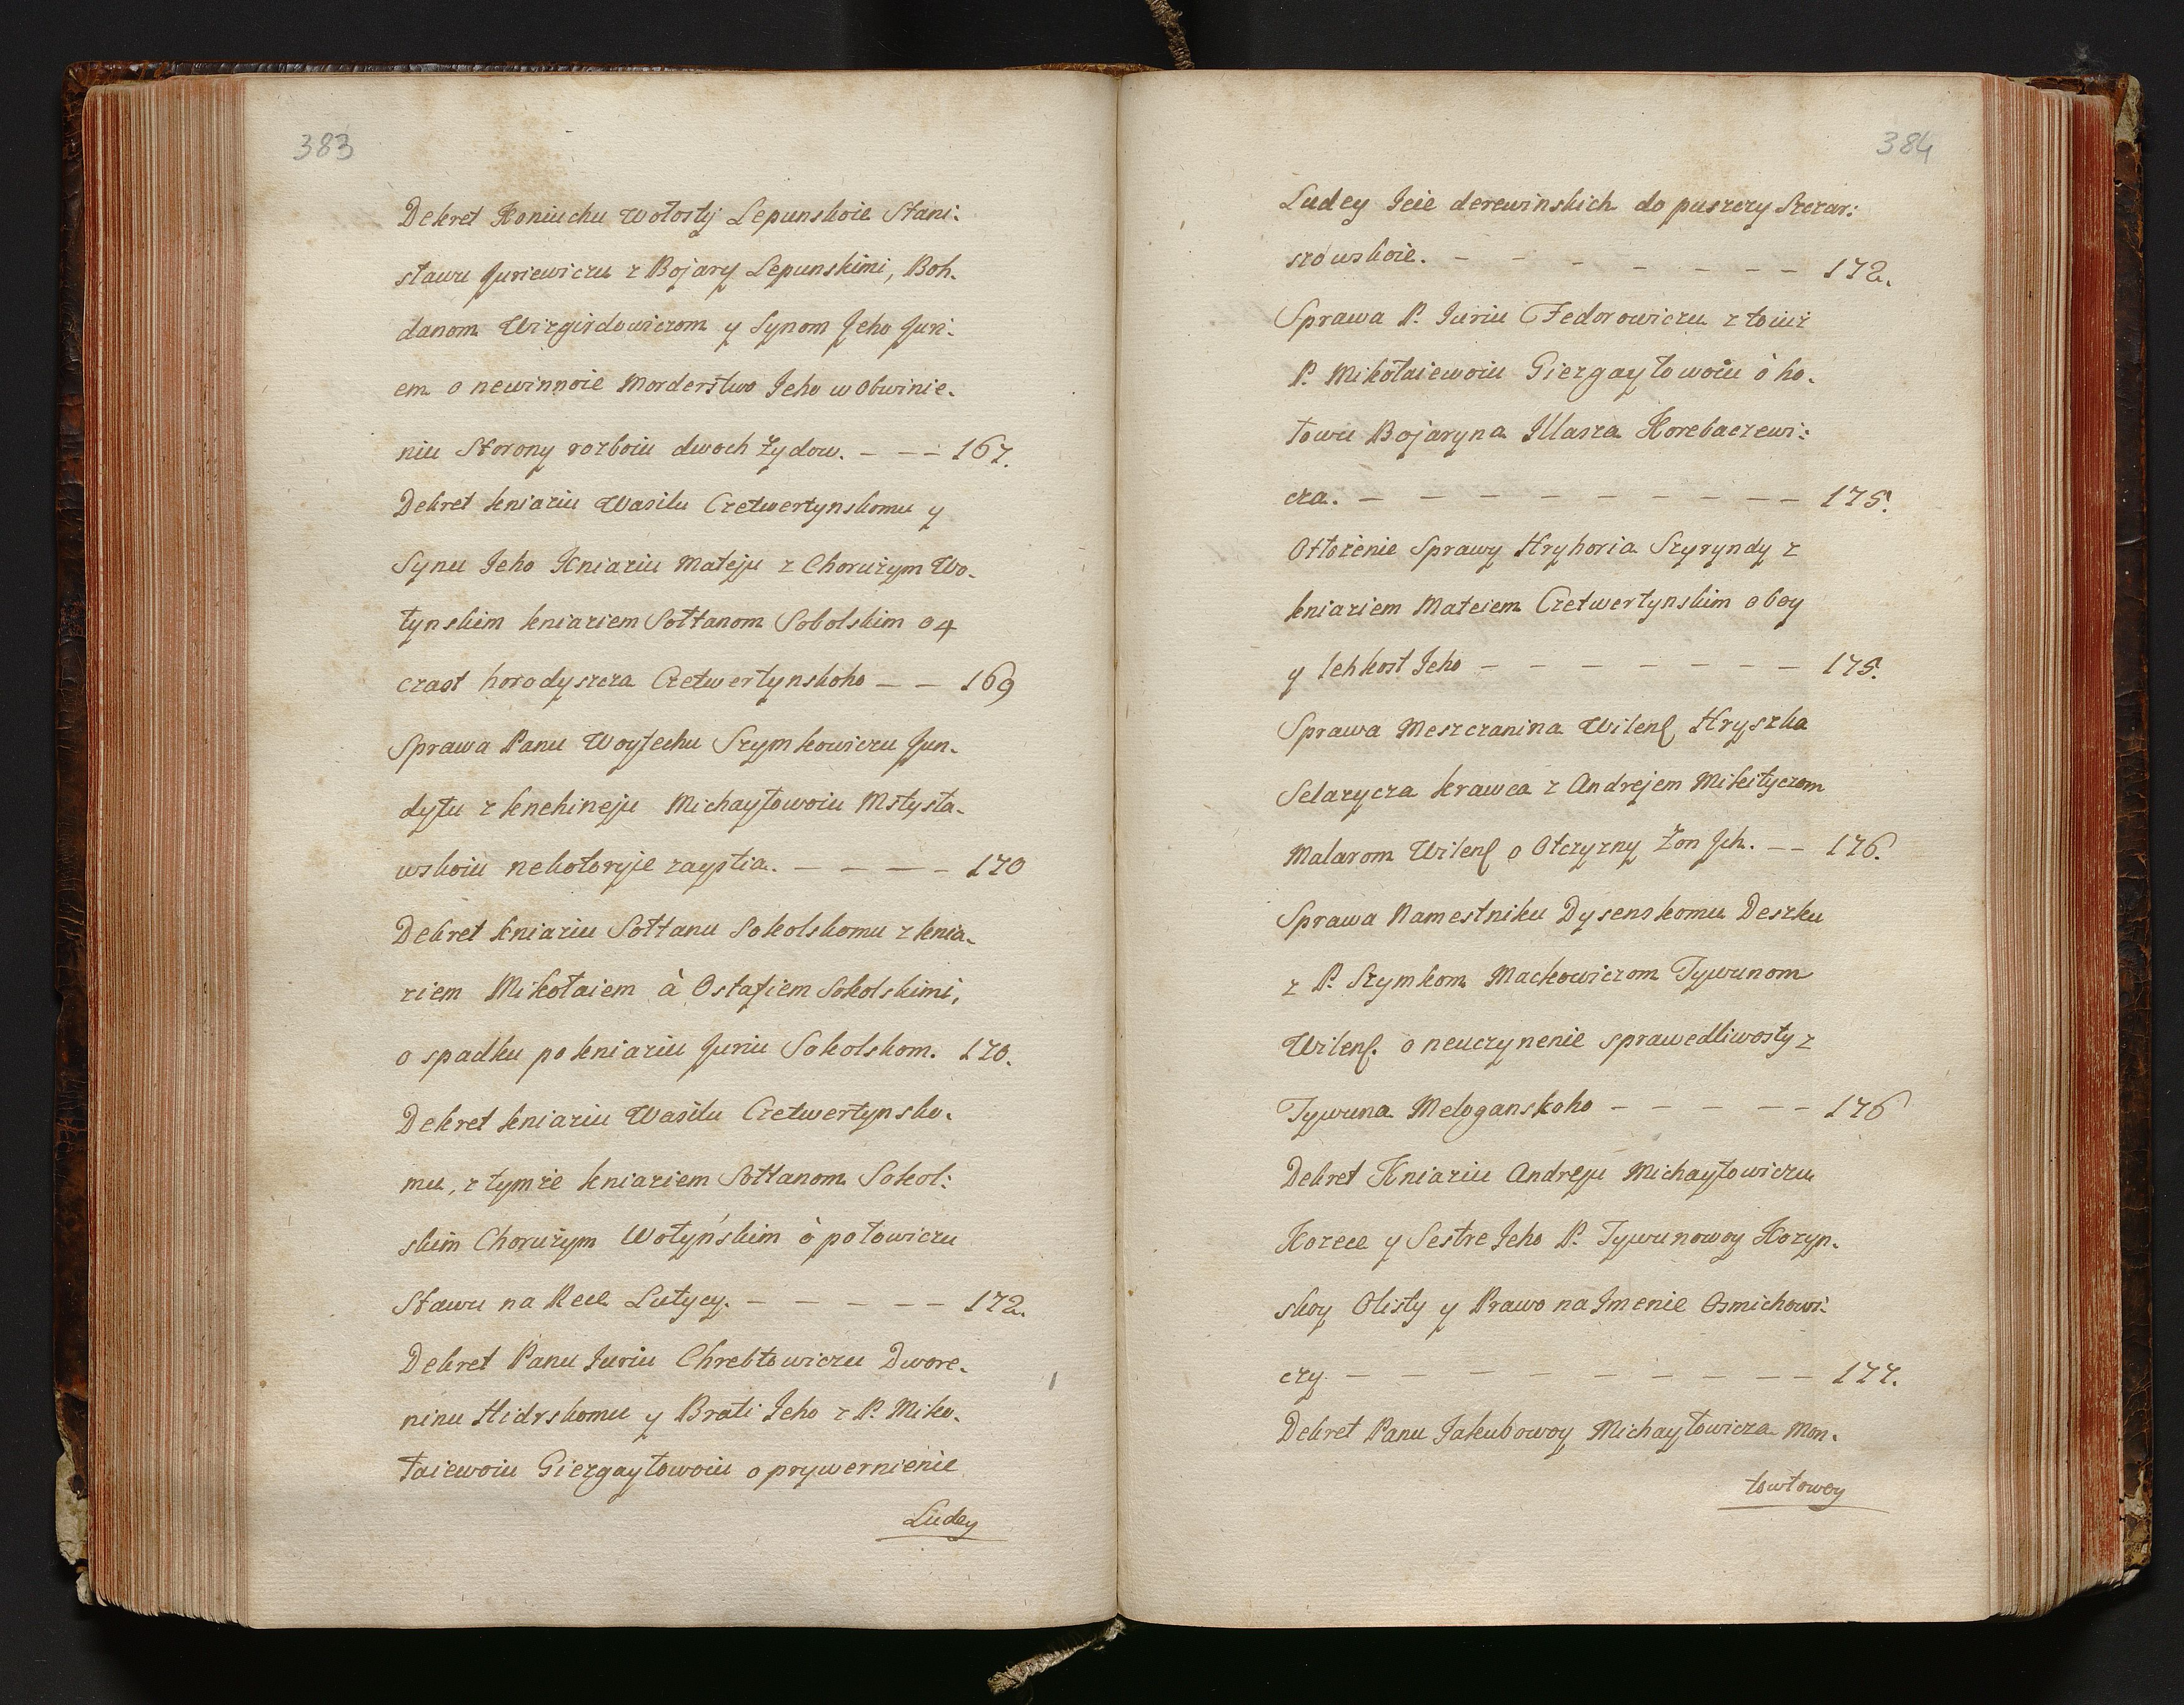 383
Dekret Koniuchu Wołosty Lepunskoie Stani:
sławu Juriewiczu z Bojary Lepunskimi, Boh-
danom Wizgirdowiczom y Synom Jeho Juri-
em o newinnoie Morderstwo Jeho w Obwinie-
niu Storony rozboiu dwoch Żydow. – – – 167.
Dekret kniaziu Wasilu Czetwertynskomu y
Synu Jeho Kniaziu Mateju z Chorużym Wo-
łynskim kniaziem Sołtanom Sobolskim o 4
czast horodyszcza Czetwertynskoho – – 169
Sprawa Panu Woytechu Szymkowiczu Jun-
dyłu z knehineju Michayłowoiu Mstysła-
wskoiu nekotoryje zaystia. – – – – 170
Dekret kniaziu Sołtanu Sokolskomu z knia-
ziem Mikołaiem à Ostafiem Sokolskimi,
o spadku po kniaziu Juriu Sokolskom. 170.
Dekret kniaziu Wasilu Czetwertynsko-
mu, z tymże kniaziem Sołtanom Sokol:
skim Chorużym Wołyńskim ò połowiczu
Stawu na Rece Lutycy. – – – – – 172.
Dekret Panu Juriu Chrebtowiczu Dwore-
ninu Hidrskomu y Brati Jeho z P. Miko-
łaiewoiu Giezgayłowoiu o prywernienie
Ludey
384
Ludey Jeie derewinskich do puszczy Szczar:
szowskoie. – – – – – – – – 172.
Sprawa P. Juriu Fedorowiczu z toiuż
P. Mikołaiewoiu Giezgayłowoiu ò ho-
łowu Bojaryna Illasza Korebaczewi:
cza. – – – – – – – – – – 175.
Otłożenie Sprawy Hryhoria Szyryndy z
kniaziem Mateiem Czetwertynskim o boy
y lehkost Jeho – – – – – – – – 175.
Sprawa Meszczanina Wilens Hryszka
Selazycza krawca z Andrejem Mikityczom
Malarom Wilens o Otczyzny Żon Jch. – – 176.
Sprawa Namestniku Dysenskomu Deszku
z P. Szymkom Mackowiczom Tywunom
Wilens. o neuczynenie sprawedliwosty z
Tywuna Meloganskoho – – – – – 176
Dekret Kniaziu Andreju Michayłowiczu
Kozece y Sestre Jeho P. Tywunowoy Kozyn-
skoy O listy y Prawo na Jmenie Osmichowi:
czy – – – – – – – – – – 177.
Dekret Panu Jakubowoy Michayłowicza Mon-
towtowoy